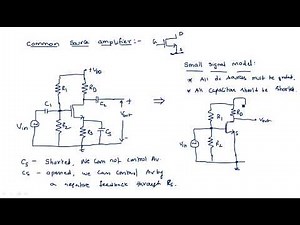 Common Source amplifier:-
G
D
S
+VDD
R1
RD
C1
C2
Vin
R2
RS
CS
Vout
CS - Shorted, We can not control Av
CS - opened, we can control Av by
a negative feedback through RS.
⇒
Small signal model:
* All dc sources must be grnded.
* All Capacitors should be shorted.
R1
RD
Vout
S
Vin
R2